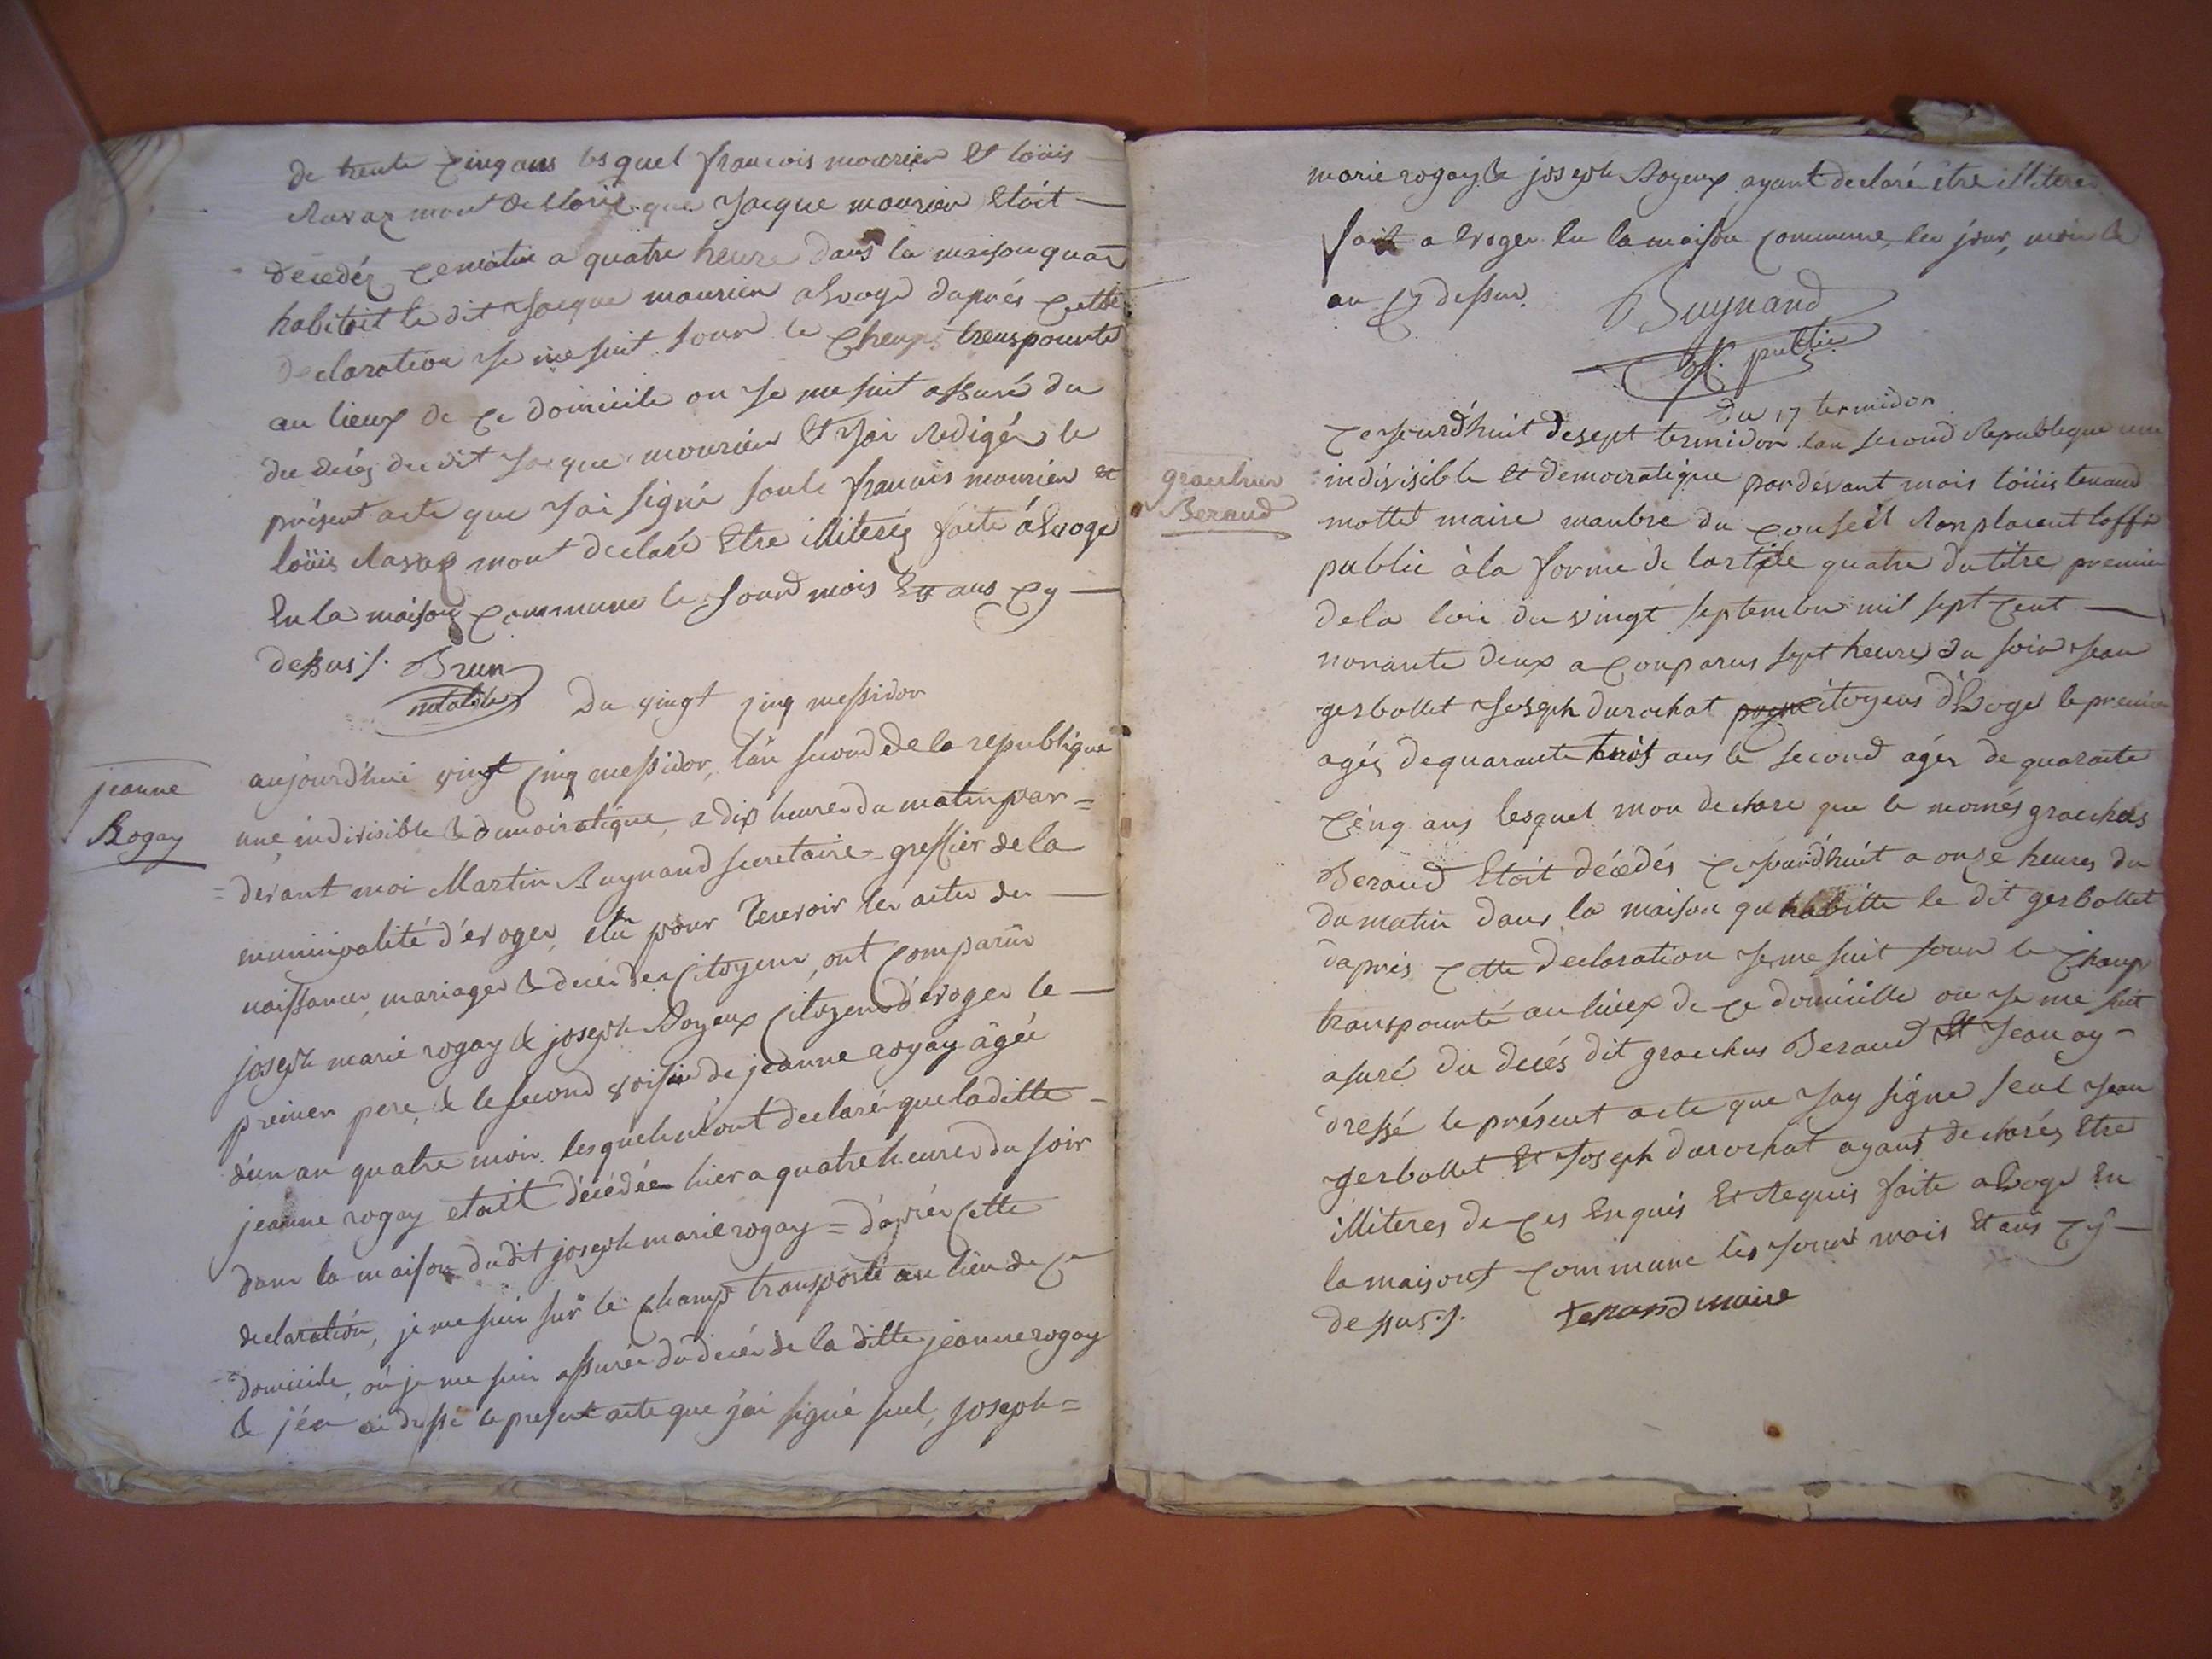 de trente cinq ans lesquel francois mourier et loüis
Ravaz mont declaré que Jacque mourier Etoit
décedéz ce matin a quatre heure dans la maison quas
habitoit le dit Jacque mourier a Evoge daprés cette
declaration Je me suit sour le champs transpourté
au lieux de ce domicile ou Je me suit assuré du
du decés du dit Jacque mourier Et Jai Redigér le
présent acte que Jai signé soule francois mourier et
loüis Ravaz mont declaré Etre illiteréz faite á Evoge
En la maison commune le Jourd mois Et ans cy
dessus ⁄. Brun
notable
Du vingt cinq messidor
jeanne
Rogay
aujourd'hui vingt cinq messidor, l'an second de la republique
une, indivisible & democratique, a dix heures du matin par=
=devant moi Martin Buynand secretaire-greffier de la
municipalité d'évoges, élu pour recevoir les actes des
naissances, mariages & decès des citoyens, ont comparûs
joseph marie rogay & joseph Boyeux citoyens d'évoges le
premier pere, & le second voisin de jeanne rogay âgée
d'un an quatre mois. lesquels m'ont declaré que la ditte
jeanne rogay etait décédée hier a quatre heures du soir
dans la maison du dit joseph marie rogay = d'après cette
declaration, je me suis sur le champ transporté au lieu de ce
domicile, où je me suis assurér du decès de la ditte jeanne rogay
& j'en ai dressé le present acte que j'ai signé seul, joseph=
marie rogay & joseph Boyeux ayant declaré être illiterés
fait a Evoges en la maison commune, les jour, mois &
an cy dessus. Buynand
off. public
Du 17 termidor
gracchus
Beraud
ce Jourd'huit desept termidor lan second Republeque une
indivisible Et democratique pardevant mois loüis tenand
mottet maire manbre du conseil Ranplacent loffi
public à la forme de lartile quatre du titre premier
de la loii du vingt septembre mil sept cent
nonante deux a conparus sept heures du soir Jean
gerbollet Joseph durochat citoyens d'Evoge le premier
agéz de quarante trois ans le second agéz de quarante
cinq ans lesquel mon declare que le momés gracchus
Beraud Etoit décedés ce Jourd'huit a onze heures du
du matin dans la maison qu habitte le dit gerbollet
daprés cette declaration Je me suit sour le champs
transpourté au lieux de ce domicille ou Je me suit
asuré du decés dit gracchus Beraud Et Jean ay-
dressé le présent acte que Jay signe seul Jean
gerbollet Et Joseph durochat ayant declaréz Etre
illiteres de ces Enquis Et Requis faite a Evoge En
la maisont commune les Jours mois Et ans cy-
dessus.⁄. tenand maire